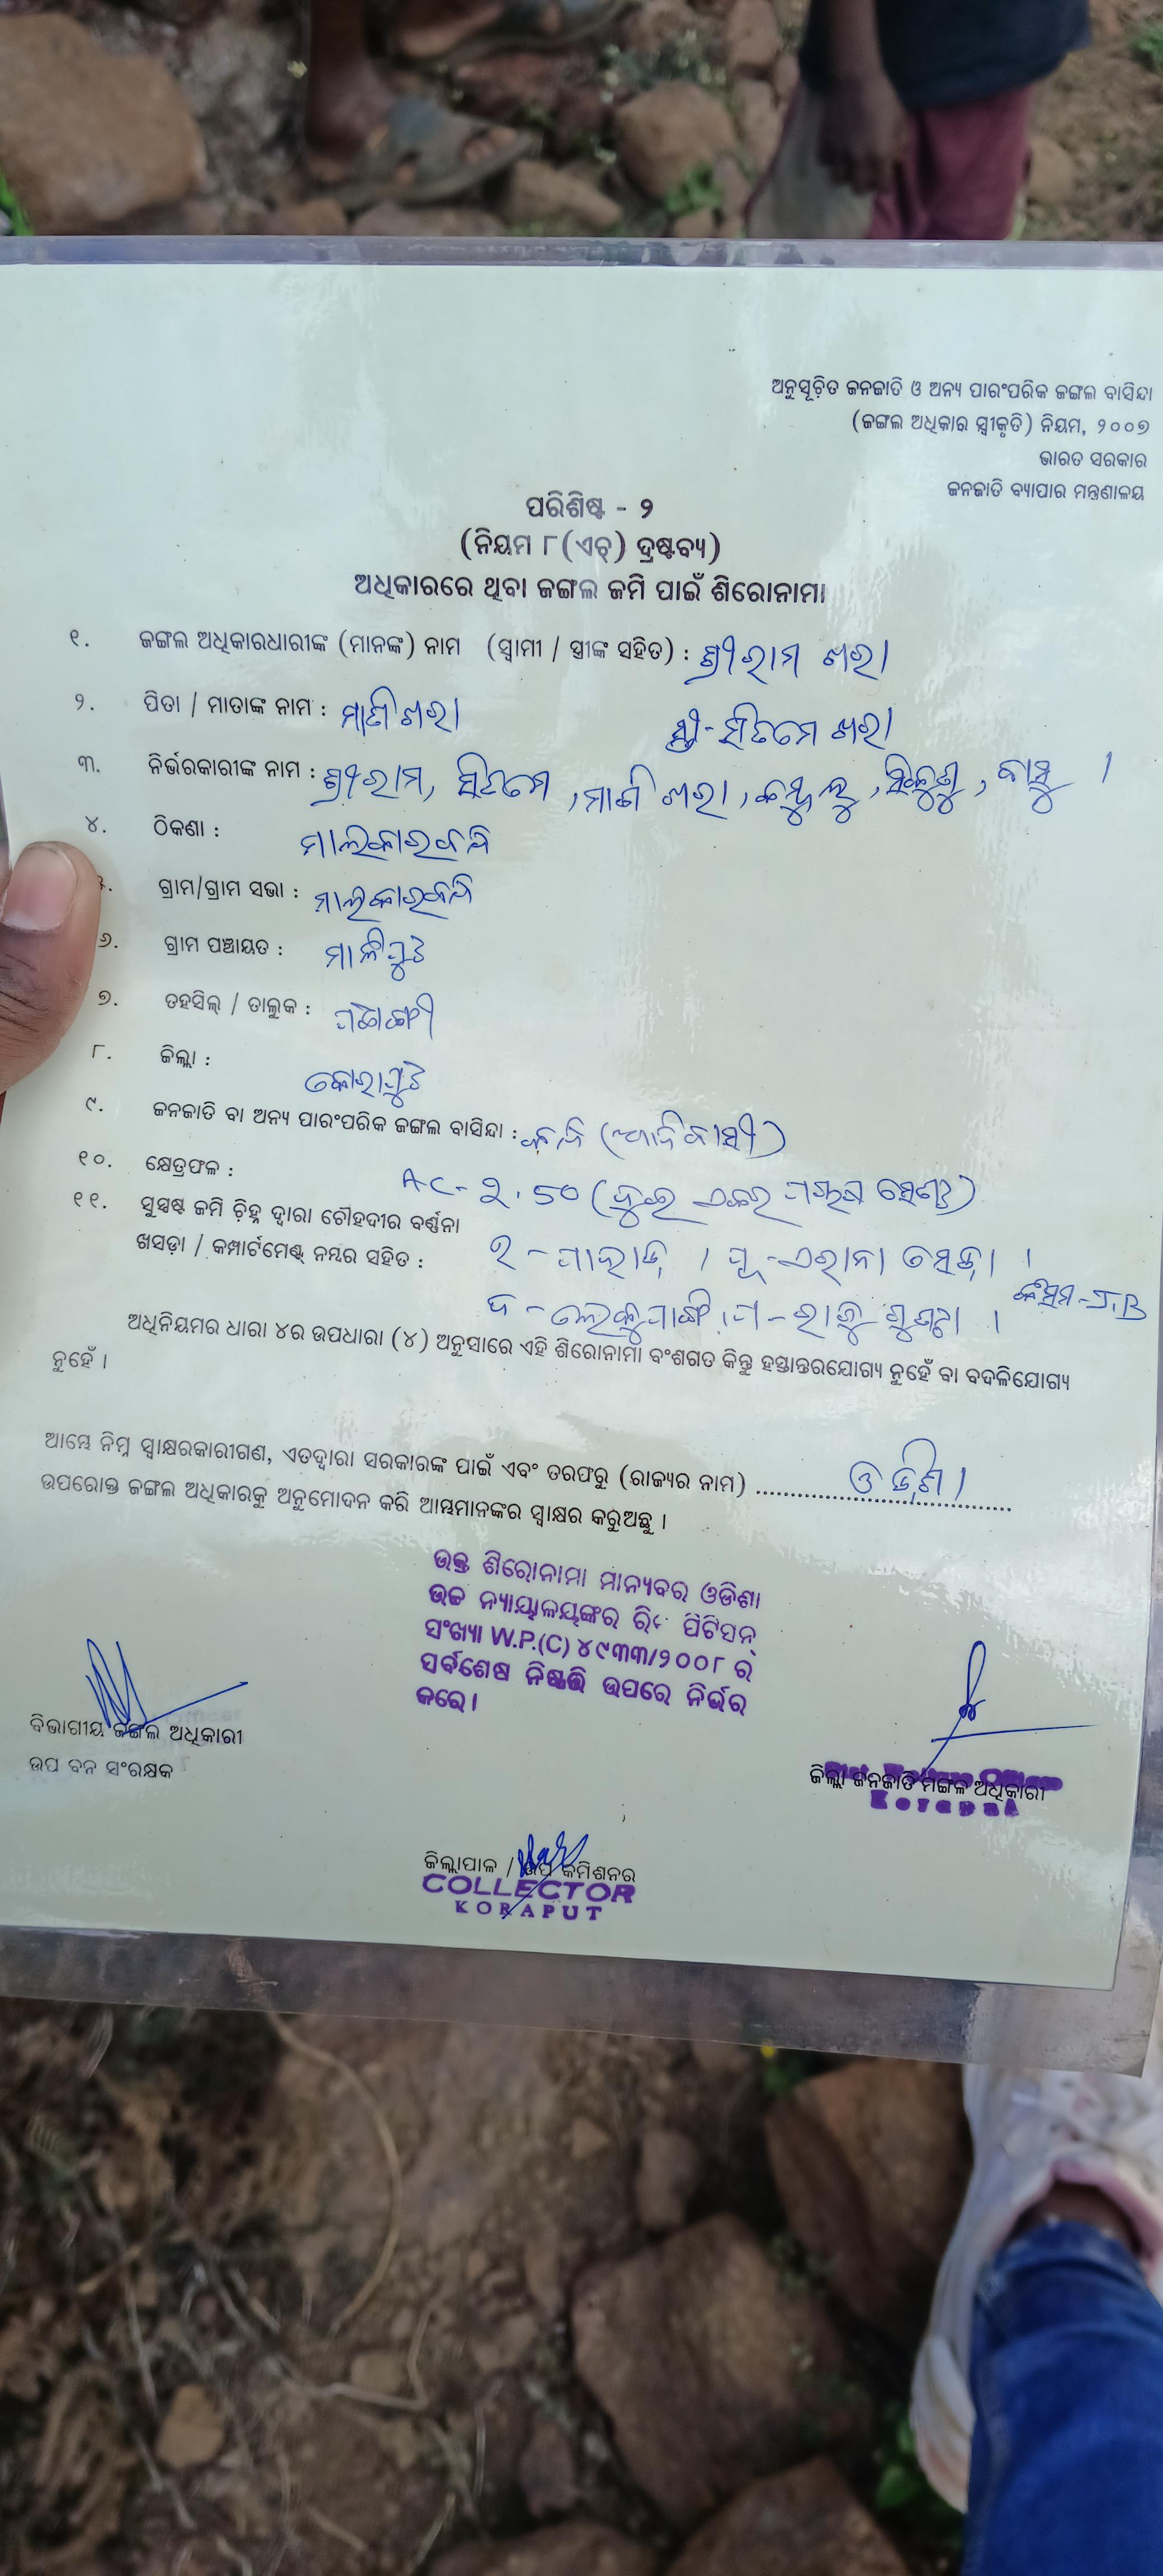 ଅନୁସୂଚିତ ଜନଜାତି ଓ ଅନ୍ୟ ପାରଂପରିକ ଜଙ୍ଗଲ ବାସିନ୍ଦା
(ଜଙ୍ଗଲ ଅଧିକାର ସ୍ୱୀକୃତି) ନିୟମ, ୨୦୦୭
ଭାରତ ସରକାର
ଜନଜାତି ବ୍ୟାପାର ମନ୍ତ୍ରଣାଳୟ
ପରିଶିଷ୍ଟ - ୨
(ନିୟମ ୮(ଏଚ୍) ଦ୍ରଷ୍ଟବ୍ୟ)
ଅଧିକାରରେ ଥିବା ଜଙ୍ଗଲ ଜମି ପାଇଁ ଶିରୋନାମା
୧. ଜଙ୍ଗଲ ଅଧିକାରଧାରୀଙ୍କ (ମାନଙ୍କ) ନାମ (ସ୍ୱାମୀ / ସ୍ତ୍ରୀଙ୍କ ସହିତ) : ଶ୍ରୀରାମ ଖରା
୨. ପିତା / ମାତାଙ୍କ ନାମ : ମାଣି ଖରା ସ୍ତ୍ରୀ- ସିତମେ ଖରା
୩. ନିର୍ଭରକାରୀଙ୍କ ନାମ : ଶ୍ରୀରାମ, ସିତମେ, ମାଣି ଖରା,
୪. ଠିକଣା : ମାଲକାରବନ୍ଧି
ଗ୍ରାମ/ଗ୍ରାମ ସଭା : ମାଲକାରବନ୍ଧି
୬. ଗ୍ରାମ ପଞ୍ଚାୟତ : ମାଳିପୁଟ
୭. ତହସିଲ୍ / ତାଲୁକ :
୮. ଜିଲ୍ଲା : କୋରାପୁଟ
୯. ଜନଜାତି ବା ଅନ୍ୟ ପାରଂପରିକ ଜଙ୍ଗଲ ବାସିନ୍ଦା : (ଆଦିବାସୀ)
୧୦. କ୍ଷେତ୍ରଫଳ : AC- 2.50 (ଦୁଇ ଏକର ପଚାଶ ସେଣ୍ଟ)
୧୧. ସୁସ୍ପଷ୍ଟ ଜମି ଚିହ୍ନ ଦ୍ୱାରା ଚୌହଦୀର ବର୍ଣ୍ଣନା
ଖସଡ଼ା / କମ୍ପାର୍ଟମେଣ୍ଟ୍ ନମ୍ବର ସହିତ :
ଅଧିନିୟମର ଧାରା ୪ର ଉପଧାରା (୪) ଅନୁସାରେ ଏହି ଶିରୋନାମା ବଂଶଗତ କିନ୍ତୁ ହସ୍ତାନ୍ତରଯୋଗ୍ୟ ନୁହେଁ ବା ବଦଳିଯୋଗ୍ୟ
ନୁହେଁ ।
ଆମ୍ଭେ ନିମ୍ନ ସ୍ୱାକ୍ଷରକାରୀଗଣ, ଏତଦ୍ୱାରା ସରକାରଙ୍କ ପାଇଁ ଏବଂ ତରଫରୁ (ରାଜ୍ୟର ନାମ) ........ ଓଡ଼ିଶା
ଉପରୋକ୍ତ ଜଙ୍ଗଲ ଅଧିକାରକୁ ଅନୁମୋଦନ କରି ଆମ୍ଭମାନଙ୍କର ସ୍ୱାକ୍ଷର କରୁଅଛୁ ।
ଉକ୍ତ ଶିରୋନାମା ମାନ୍ୟବର ଓଡିଶା
ଉଚ୍ଚ ନ୍ୟାୟାଳୟଙ୍କର ରିଟ ପିଟିସନ୍
ସଂଖ୍ୟା W.P.(C) ୪୯୩୩/୨୦୦୮ ର
ସର୍ବଶେଷ ନିଷ୍ପତ୍ତି ଉପରେ ନିର୍ଭର
କରେ ।
ବିଭାଗୀୟ ଜଙ୍ଗଲ ଅଧିକାରୀ
ଉପ ବନ ସଂରକ୍ଷକ
ଜିଲ୍ଲା ଜନଜାତି ମଙ୍ଗଳ ଅଧିକାରୀ
Koraput
ଜିଲ୍ଲାପାଳ / ଉପ କମିଶନର
COLLECTOR
KORAPUT